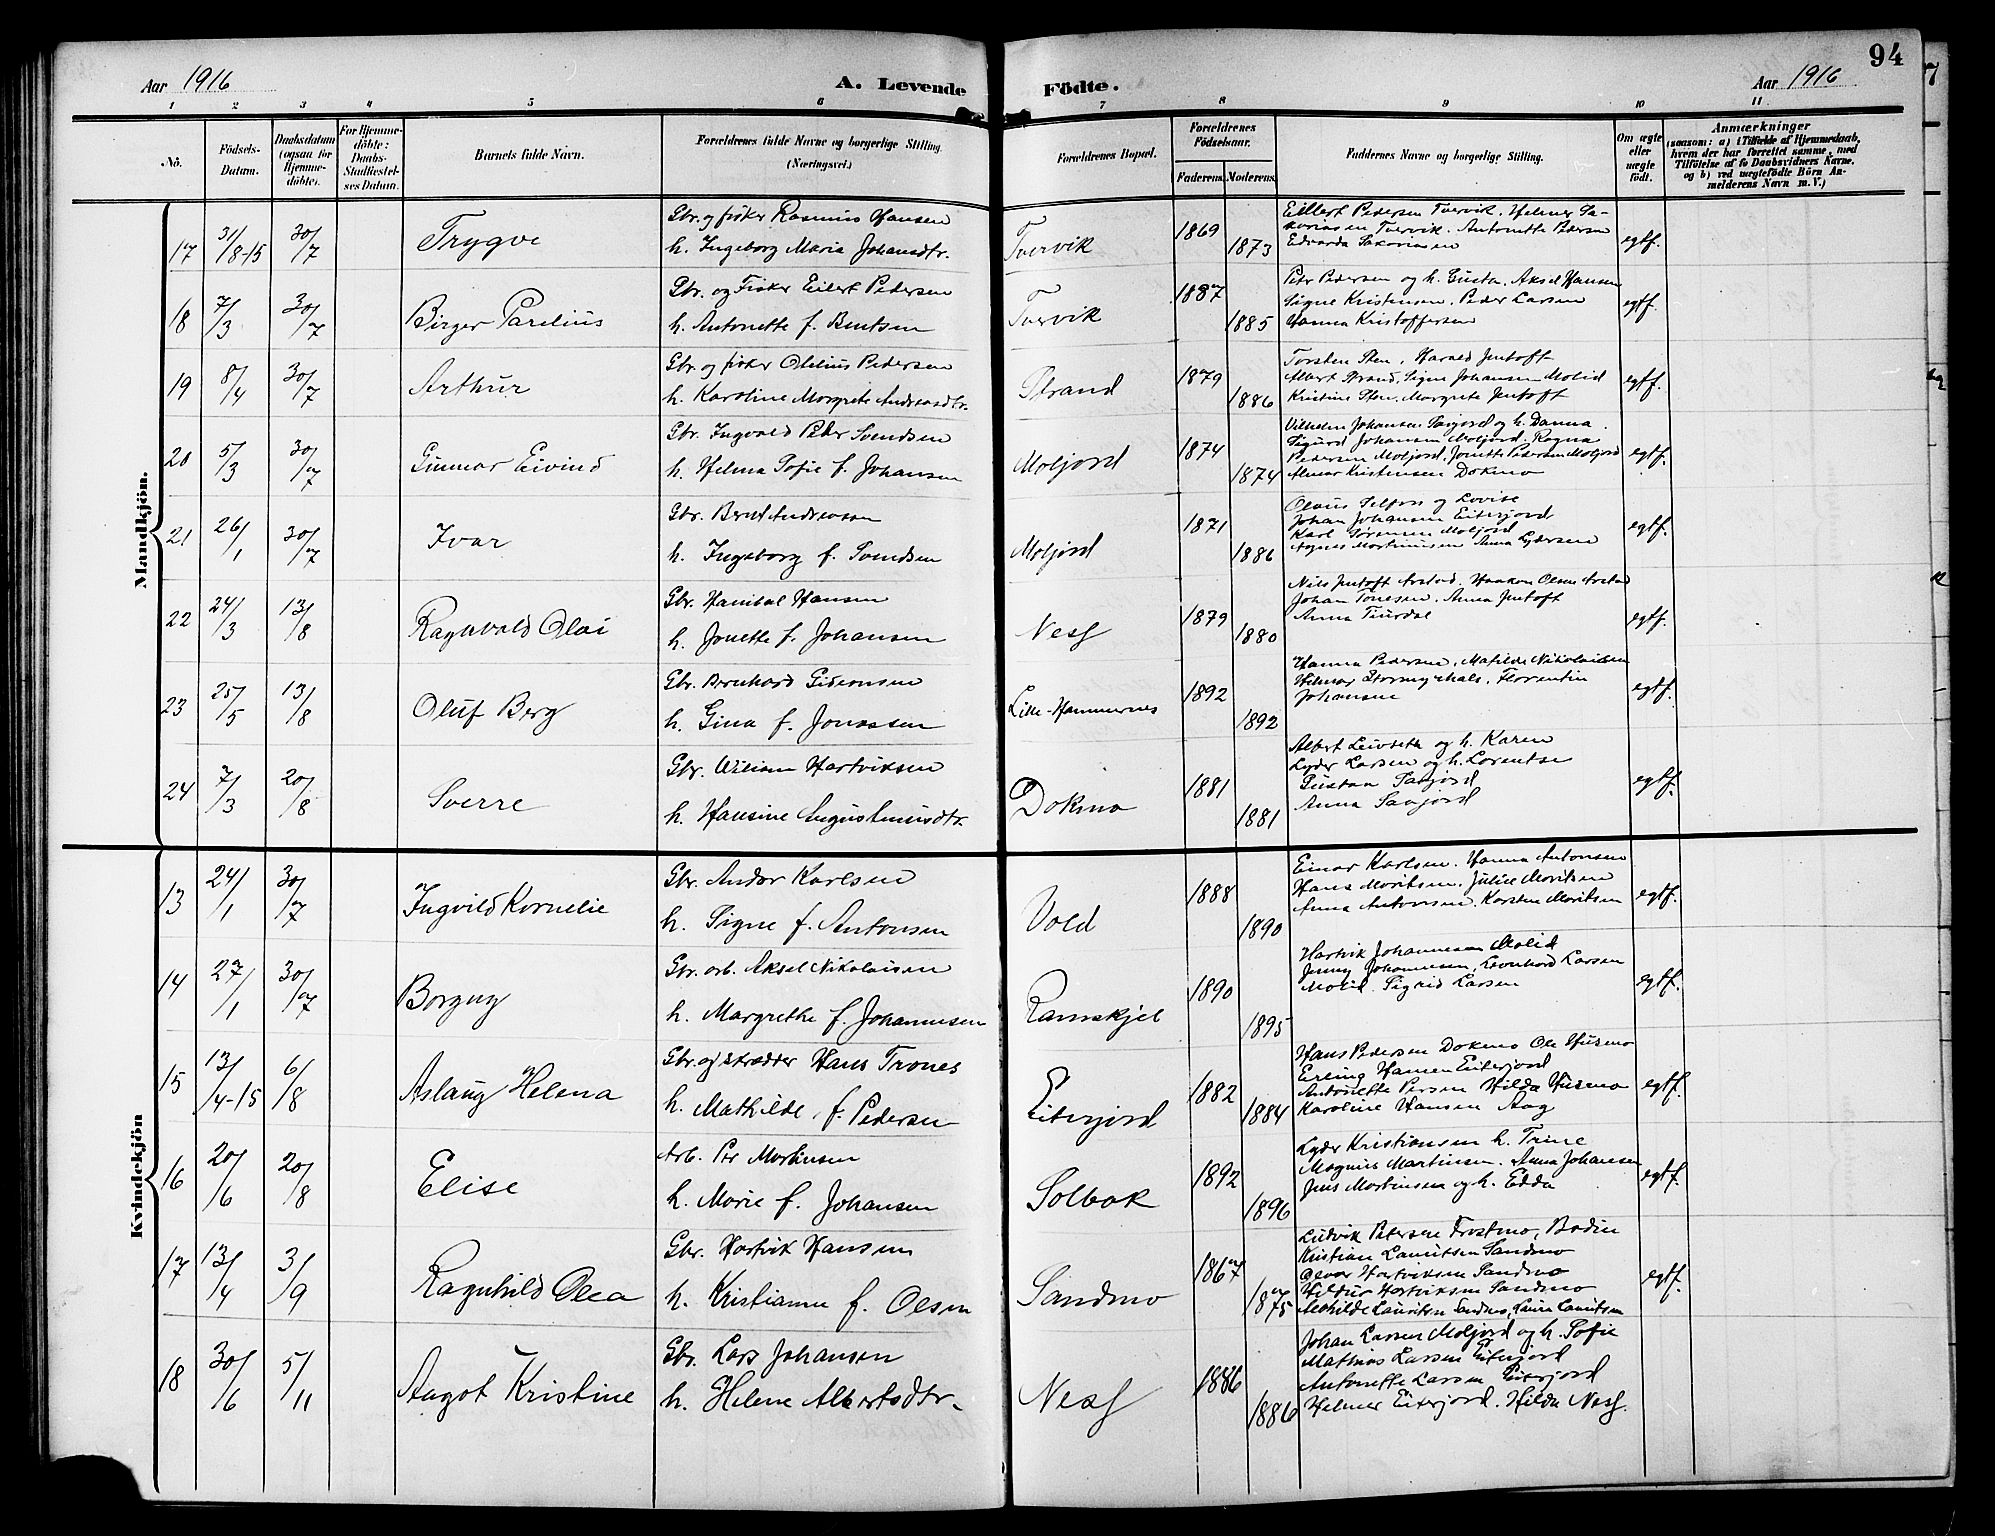 94
Aar 1916 A. Levende Födte. Aar 1916
1 2 3 4 5 6 7 8 9 10 11
Nô. Födsels-Datum. Daabsdatum (ogsaa for Hjemme-döbte). For Hjemme-döbte: Daabs-Stadfæstelses Datum. Barnets fulde Navn. Forældrenes fulde Navne og borgerlige Stilling. (Næringsvei.) Forældrenes Bopæl. Forældrenes Födselsaar. Faderens. Moderens. Faddernes Navne og borgerlige Stilling. Om ægte eller uægte födt. Anmærkninger (saasom: a) i Tilfælde af Hjemmedaab, hvem der har forrettet samme, med Tilföielse af to Daabsvidners Navne, og b) ved uægtefödte Börn Anmelderens Navn m. V.)
Mandkjön.
17 31/8-15 30/7 Trygve Gbr. og fisker Rasmus Hansen
h. Ingeborg Maria Johansdtr. Tvervik 1869 1873 Eillert Pedersen Tvervik. Helmer Sa-
kariassen Tvervik. Antonette Pedersen
Edvarda Sakariassen egtf.
18 7/3 30/7 Birger Parelius Gbr. og Fisker Eilert Pedersen
h. Antonette f. Bentsen Tvervik 1887 1885 Petr Pedersen og h. Gusta. Aksel Hansen
Signe Kristensen. Peder Larsen
Hanna Kristoffersen egtf.
19 8/4 30/7 Arthur Gbr. og fisker Olelius Pedersen
h. Karoline Margrete Andreasdtr. Strand 1879 1886 Torsten Sten. Harald Jentoft
Albert Strand. Signe Johansen Molid
Kristine Sten. Margrete Jentoft egtf.
20 5/3 30/7 Gunnar Eivind Gbr. Ingvald Peder Svendsen
h. Helma Sofie f. Johansen Moljord 1874 1874 Vilhelm Johansen Savjord og h. Danna.
Sigurd Johansen Moljord. Ragna
Pedersen Moljord. Jonette Pedersen Moljord
Almar Kristensen Dokmo egtf.
21 26/1 30/7 Ivar Gbr. Bernt Andreassen
h. Ingeborg f. Svendsen Moljord 1871 1886 Olaus Selfors og Lovise
Johan Johansen Eiterjord
Karl Sørensen Moljord
Agnes Martinusen Anna Lydersen egtf.
22 24/3 13/8 Ragnvald Olai Gbr. Hanibal Hansen
h. Jonette f. Johansen Nesf 1879 1880 Nils Jentoft Arstad. Haakon Olsen Arstad
Johan Tonesen. Anna Jentoft
Anna Tiurdal egtf.
23 25/5 13/8 Oluf Berg Gbr. Bernhard Gideonsen
h. Gina f. Jonassen Lille-Hammernes 1892 1892 Hanna Pedersen. Matilde Nikolaisen
Hilmar Stormyrhals. Florentin
Johansen egtf.
24 7/3 20/8 Sverre Gbr. Wiliam Hartviksen
h. Hansine Augustinusdtr. Dokmo 1881 1881 Albert Leivseth og h. Karen
Lyder Larsen og h. Lorentse
Gustaa Savjord
Anna Savjord egtf.
Kvindekjön
13 24/1 30/7 Ingvild Kornelie Gbr. Andor Karlsen
h. Signe f. Antonsen Vold 1888 1890 Einar Karlsen. Hanna Antonsen
Hans Moritsen. Julie Moritsen
Anna Antonsen. Karsten Moritsen egtf.
14 27/1 30/7 Borgny Gbr. arb. Aksel Nikolaisen
h. Margrethe f. Johannesen Ramskjel 1890 1895 Hartvik Johannesen Molid
Jenny Johannesen. Leonhard Larsen
Molid. Sigrid Larsen egtf.
15 13/4-15 6/8 Aslaug Helena Gbr. og skrædder Hans Trones
h. Mathilde f. Pedersen Eiterjord 1882 1884 Hans Pedersen Dokmo Ole Husmo
Erling Hansen Eiterjord
Antonette Persen Hilda Husmo
Karoline Hansen Aag egtf.
16 20/6 20/8 Elise Arb. Per Martinsen
h. Marie f. Johansen Solbak 1892 1896 Lyder Kristiansen h. Trine
Magnus Martinsen. Anna Johansen
Jens Martinsen og h. Edda egtf.
17 13/4 3/9 Ragnhild Olea Gbr. Hartvik Hansen
h. Kristianne f. Olsen Sandmo 1867 1875 Ludvik Petersen Frostmo, Bodin
Kristian Lauritsen Sandmo
Hartviksen Sandmo
Hildur Hartviksen Sandmo
Mathilde Lauritsen Sandmo, Laura Lauritsen egtf.
18 30/6 5/11 Aagot Kristine Gbr. Lars Johansen
h. Helene Albertsdtr. Nesf 1886 1886 Johan Larsen Moljord og h. Sofie
Mathias Larsen Eiterjord
Antonette Larsen Eiterjord
Helmer Eiterjord. Hilda Nesf.